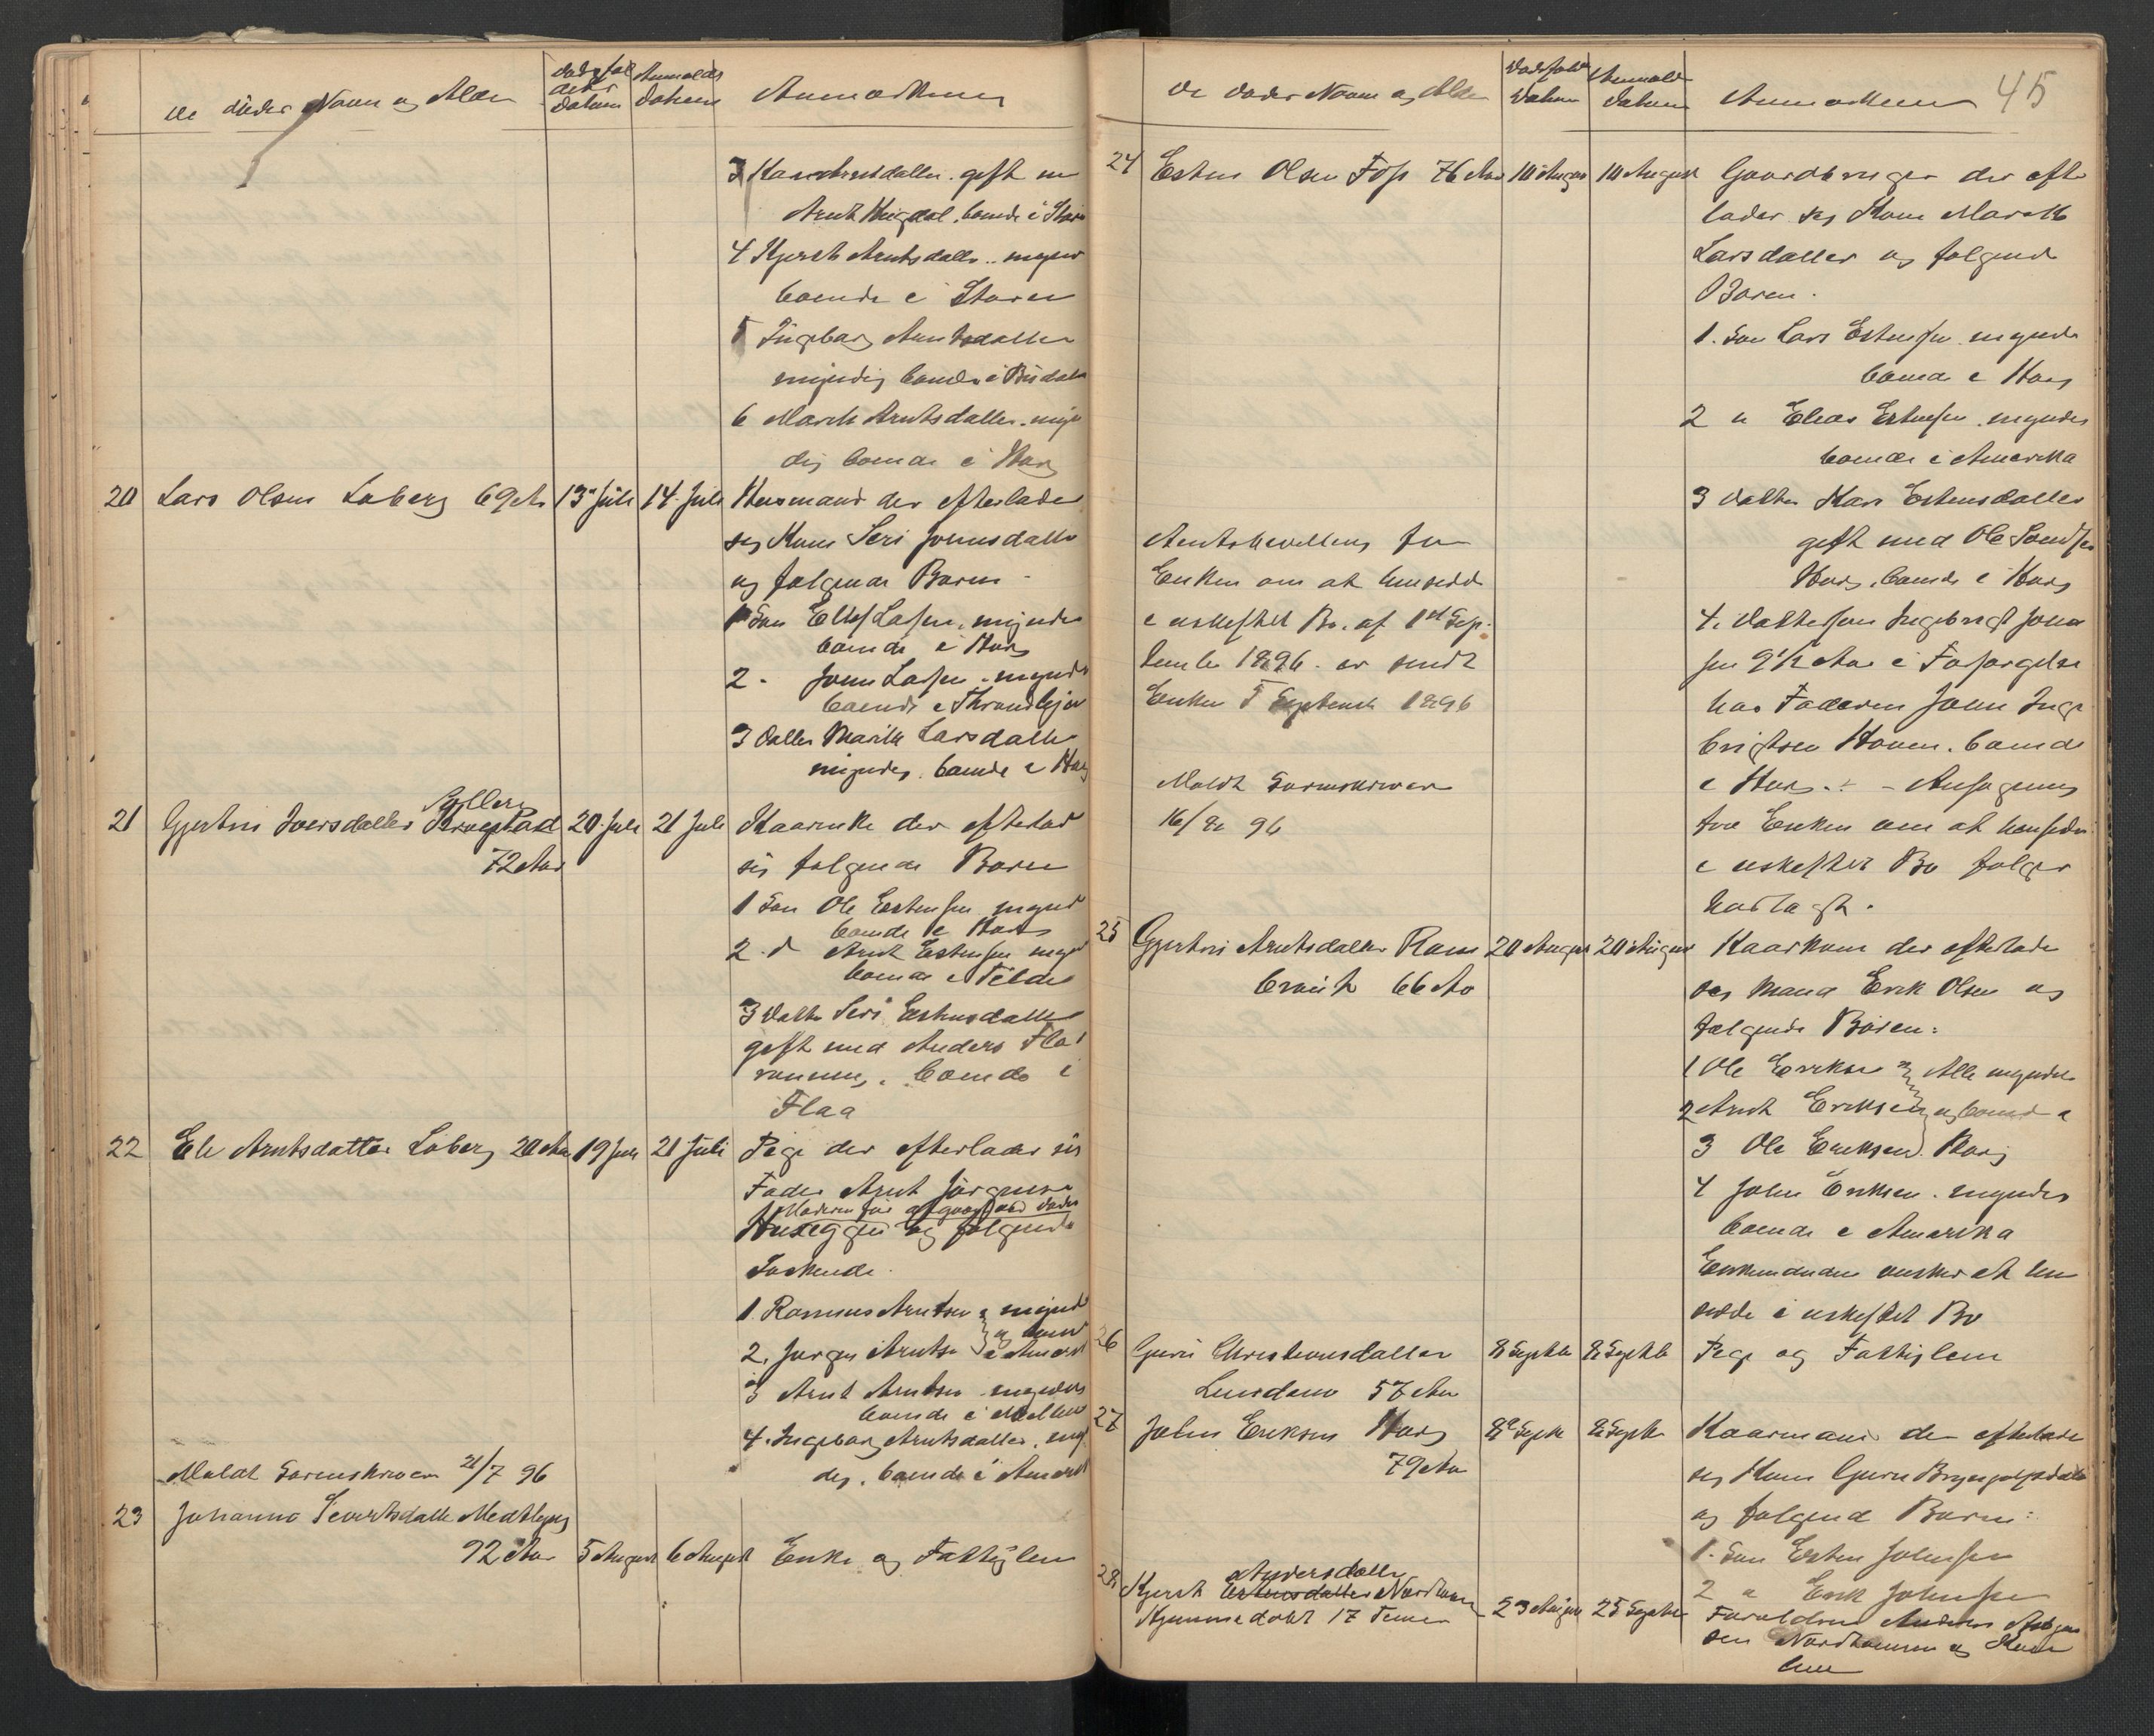 De dødes Navn og Alder
Dødsfal
dets
Datum
Anmeldes
Datum
Anmærkning
3 Kari Arntsdatter gift m
Arnt Hugdal, boende i Støre
4 Kjersti Arntsdatter myndi
boende i Støren
5 Ingeborg Arntsdatter
myndig boende i Budalen
6 Marit Arntsdatter myn
dig boende i Horg
20 Lars Olsen Loberg 69 Ar 13de Juli 14. Juli Husmand der efterlader
sig Kone Seri Jonsdatter
og følgende Børn
1 Søn Ellef Larsen, myndig
boende i Horg
2. John Larsen myndig
boende i Throndhjem
3 Datter Marith Larsdatter
myndig boende i Horg
21 Gjertru Iversdatter Krogstad 20. Juli 21 Juli Kaarenke der efterlad
72 Aar sig følgende Børn
1 Søn Ole Estensen mynd
boende i Horg
2. d Arnt Estensen mynd
boende i Tilder
3 Datter Seri Estensdatter
gift med Anders Fla
rønning, boende i
Flaa
22 Eli Arntsdatter Loberg 20 Aar 19 Juli 21 Juli Pige der efterlader sig
Fader Arnt Jørgensen
Moderen før afgaaet ved døden
og følgende
Søskende
1 Rasmus Arntsen mynd
og boende
2. Jørgen Arntsen i Amerik
3 Arnt Arntsen myndig
boende i Melhus
4. Ingeborg Arntsdatter, myn
dig, boende i Amerik
Meldt Sorenskriveren 21/7 96
23 Johanna Severtsdatter
92 Aar 5 August 6 August Enke og Fattiglem
De dødes Navn og Alder
Dødsfald
Datum
Anmeld
Datum
Anmærkning
45
24 Esten Olsen Foss 76 Aar 10 August 10 August Gaardbruger der efter
lader sig Kone Marith
Larsdatter og følgende
Børn.
1. Søn Lars Estensen myndig
boende i Horg
2 " Elias Estensen myndig
boende i Amerika
3 Datter Kari Estensdatter
gift med Ole
Horg, boende i Horg
4. Dattersøn Ingebrigt John
sen 9 1/2 Aar i Forsørgelse
hos Faderen John Inge
brigtsen Hovin. boende
i Horg. - Ansøgning
fra Enken om at hensidde
i uskiftet Bo følger
vedlagt.
Amtsbevilling for
Enken om at hensidde
i uskiftet Bo. af 1st Sep
tember 1896. er sendt
Enken 5 September 1896
Meldt Sorenskriveren
16/8 96
25 Gjertru Arntsdatter Ram 20 August 20 August Kaarkone der efterlader
braut 66 Aar sig Mand Erik Olsen og
følgende Børn:
1 Ole Eriksen Alle myndige
2 Arnt Eriksen og boende i
3 Ole Eriksen Horg
4 John Eriksen. myndig
boende i Amerika
Enkemanden ønsker at hen
sidde i uskiftet Bo
26 Guri Christensdatter 8 Septbr 8 Septbr Pige og Fattiglem
57 Aar
27 John Eriksen Horg 8de Septb 8 Septbr Kaarmand der efterlader
79 Aar sig Kone Guru
og følgende Børn:
1. Søn Esten Johnsen
2 " Erik Johnsen
28 Kjersti Andersdatter Estensdatter Nordhaven
Hjemmedøbt 17 Timer 23 August 25 Septbr Forældrene Anders
sen Nordhaven og Kone